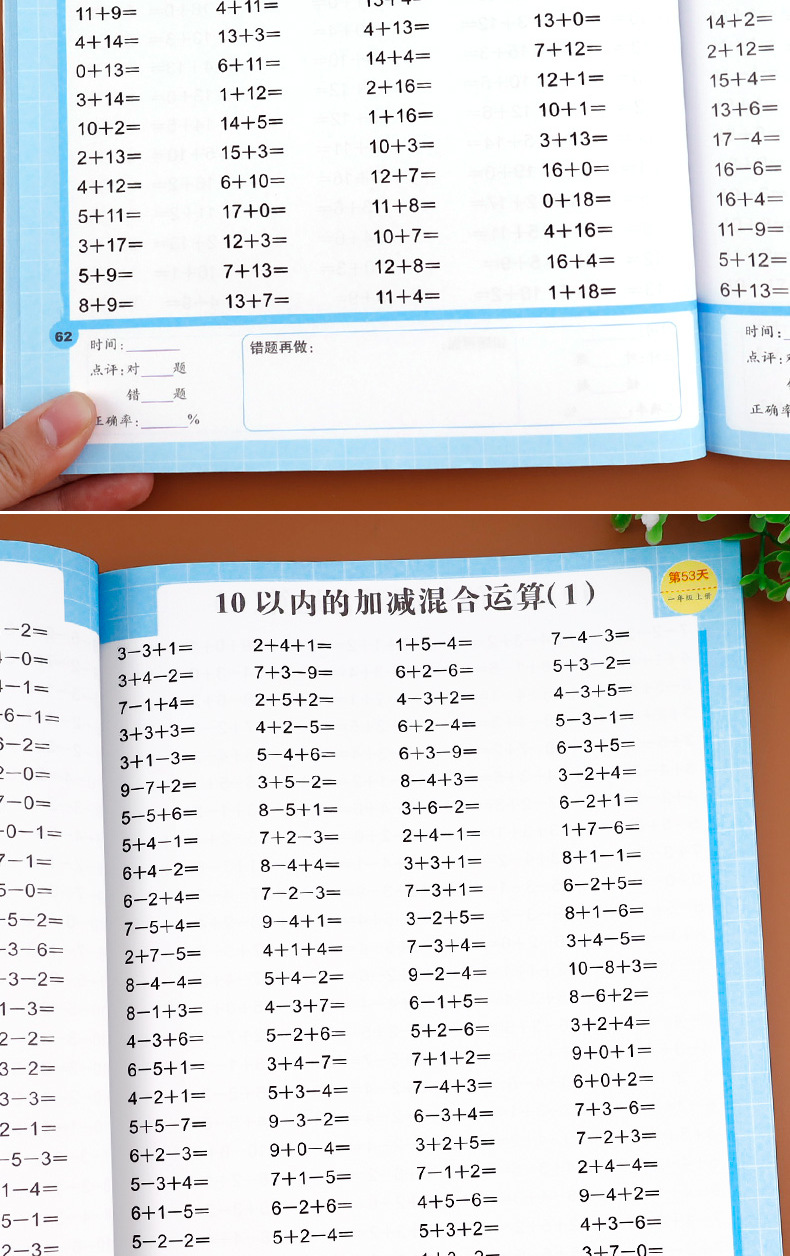 11+9= 4+11=
4+14= 13+3= 4+13= 13+0= 14+2=
0+13= 6+11= 14+4= 7+12= 2+12=
3+14= 1+12= 2+16= 12+1= 15+4=
10+2= 14+5= 1+16= 10+1= 13+6=
2+13= 15+3= 10+3= 3+13= 17−4=
4+12= 6+10= 12+7= 16+0= 16−6=
5+11= 17+0= 11+8= 0+18= 16+4=
3+17= 12+3= 10+7= 4+16= 11−9=
5+9= 7+13= 12+8= 16+4= 5+12=
8+9= 13+7= 11+4= 1+18= 6+13=
62
时间:
点评:对 题
错 题
正确率: %
错题再做:
时间:
点评:
正确率
10以内的加减混合运算(1)
第53天
一年级上册
3−3+1= 2+4+1= 1+5−4= 7−4−3=
3+4−2= 7+3−9= 6+2−6= 5+3−2=
7−1+4= 2+5+2= 4−3+2= 4−3+5=
3+3+3= 4+2−5= 6+2−4= 5−3−1=
3+1−3= 5−4+6= 6+3−9= 6−3+5=
9−7+2= 3+5−2= 8−4+3= 3−2+4=
5−5+6= 8−5+1= 3+6−2= 6−2+1=
5+4−1= 7+2−3= 2+4−1= 1+7−6=
6+4−2= 8−4+4= 3+3+1= 8+1−1=
6−2+4= 7−2−3= 7−3+1= 6−2+5=
7−5+4= 9−4+1= 3−2+5= 8+1−6=
2+7−5= 4+1+4= 7−3+4= 3+4−5=
8−4−4= 5+4−2= 9−2−4= 10−8+3=
8−1+3= 4−3+7= 6−1+5= 8−6+2=
4−3+6= 5−2+6= 5+2−6= 3+2+4=
6−5+1= 3+4−7= 7+1+2= 9+0+1=
4−2+1= 5+3−4= 7−4+3= 6+0+2=
5+5−7= 9−3−2= 6−3+4= 7+3−6=
6+2−3= 9+0−4= 3+2+5= 7−2+3=
5−3+4= 7+1−5= 7−1+2= 2+4−4=
6+1−5= 6−2+6= 4+5−6= 9−4+2=
5−2−2= 5+2−4= 5+3+2= 4+3−6=
3+7−0=
−2=
−0=
−1=
+6−1=
−2=
−0=
−0=
−0−1=
−1=
−0=
−5−2=
−3−6=
−3−2=
1−3=
2−2=
3−2=
3−3=
2−1=
−5−3=
1−4=
5−1=
2−3=